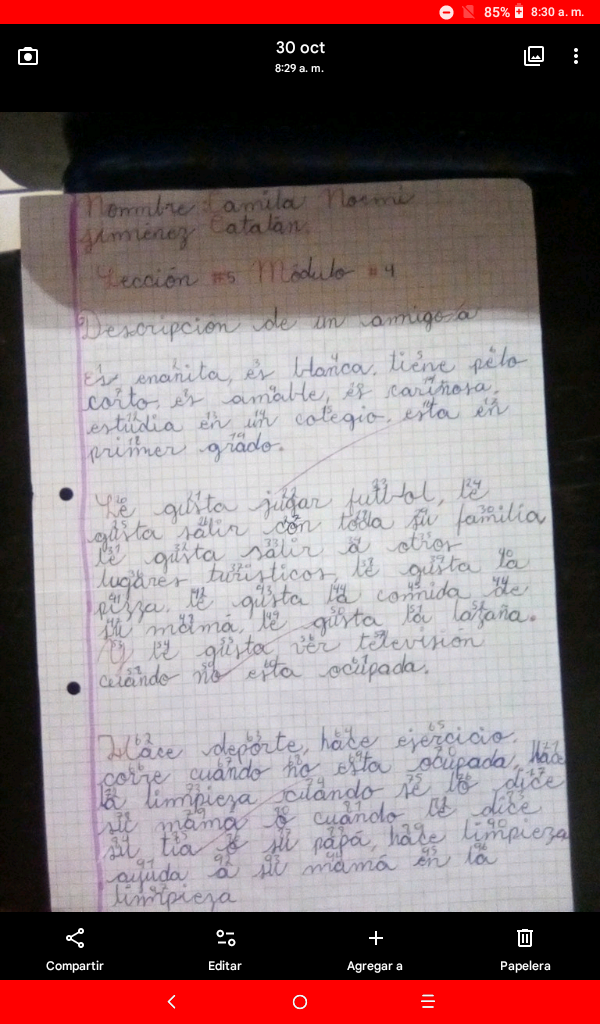 85% 8:30 a. m.
30 oct
8:29 a. m.
Nommbre Camila Noemí
Jimménez Catalán.
Lección #5 Módulo #4
Descripción de un amigo-a
Es enanita, es blanca. tiene pelo
corto, es amable, es cariñosa.
estudia en un colegio. esta en
primer grado.
Le gusta jugar futbol, le
gusta salir con toda su familia
le gusta salir a otros
lugares turísticos, le gusta la
pizza. le gusta la commida de
su mamá, le gusta la lazaña.
Y le gusta ver televisión
cuando no esta ocupada.
Hace deporte, hace ejercicio.
corre cuando no esta ocupada, hace
la limpieza cuando se lo dice
su mama o cuando le dice
su tia o su papá, hace limpieza
ayuda a su mamá en la
limpieza
Compartir
Editar
Agregar a
Papelera